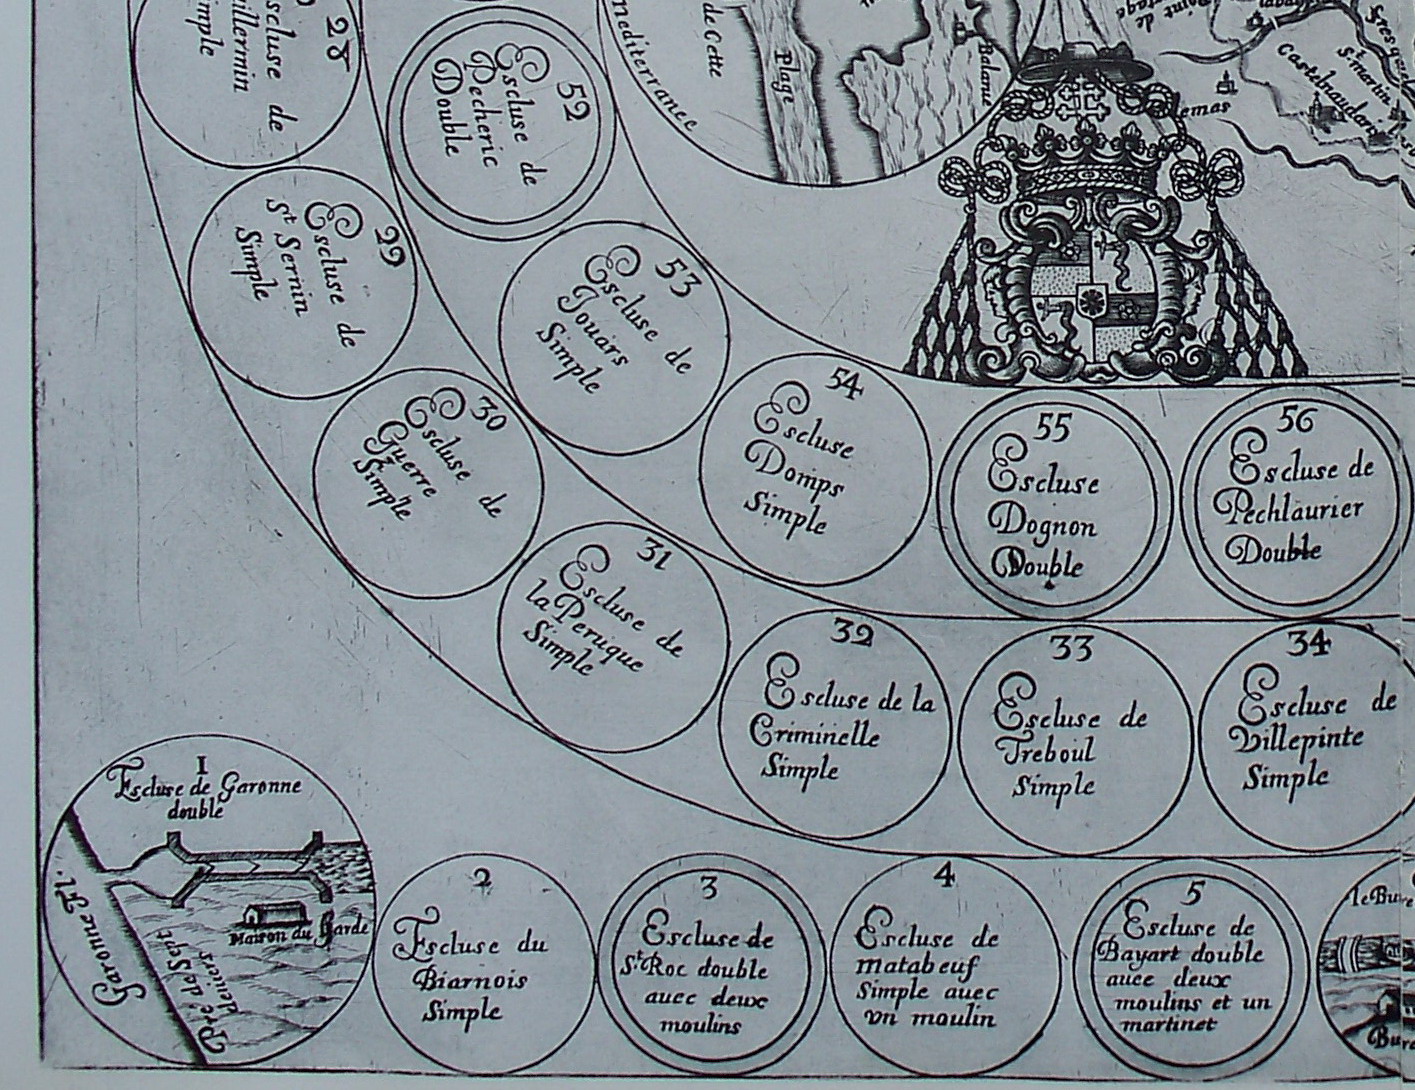 28
scluse de
villermin
imple
29
Escluse de
St Sernin
Simple
30
Escluse de
Guerre
Simple
31
Escluse de
la Peruque
Simple
32
Escluse de la
Criminelle
Simple
33
Escluse de
Treboul
Simple
34
Escluse de
Villepinte
Simple
52
Escluse de
Pecheric
Double
53
Escluse de
Jouars
Simple
54
Escluse
Domps
Simple
55
Escluse
Dognon
Double
56
Escluse de
Pechlaurier
Double
mediterranee
de Cette
Plage
Balaruc
Castelnaudary
St martin
1
Escluse de Garonne
double
Garonne fl.
Maison du Garde
Pré de Sept
deniers
2
Escluse du
Biarnois
Simple
3
Escluse de
St Roc double
auec deux
moulins
4
Escluse de
matabeuf
Simple auec
vn moulin
5
Escluse de
Bayart double
auec deux
moulins et un
martinet